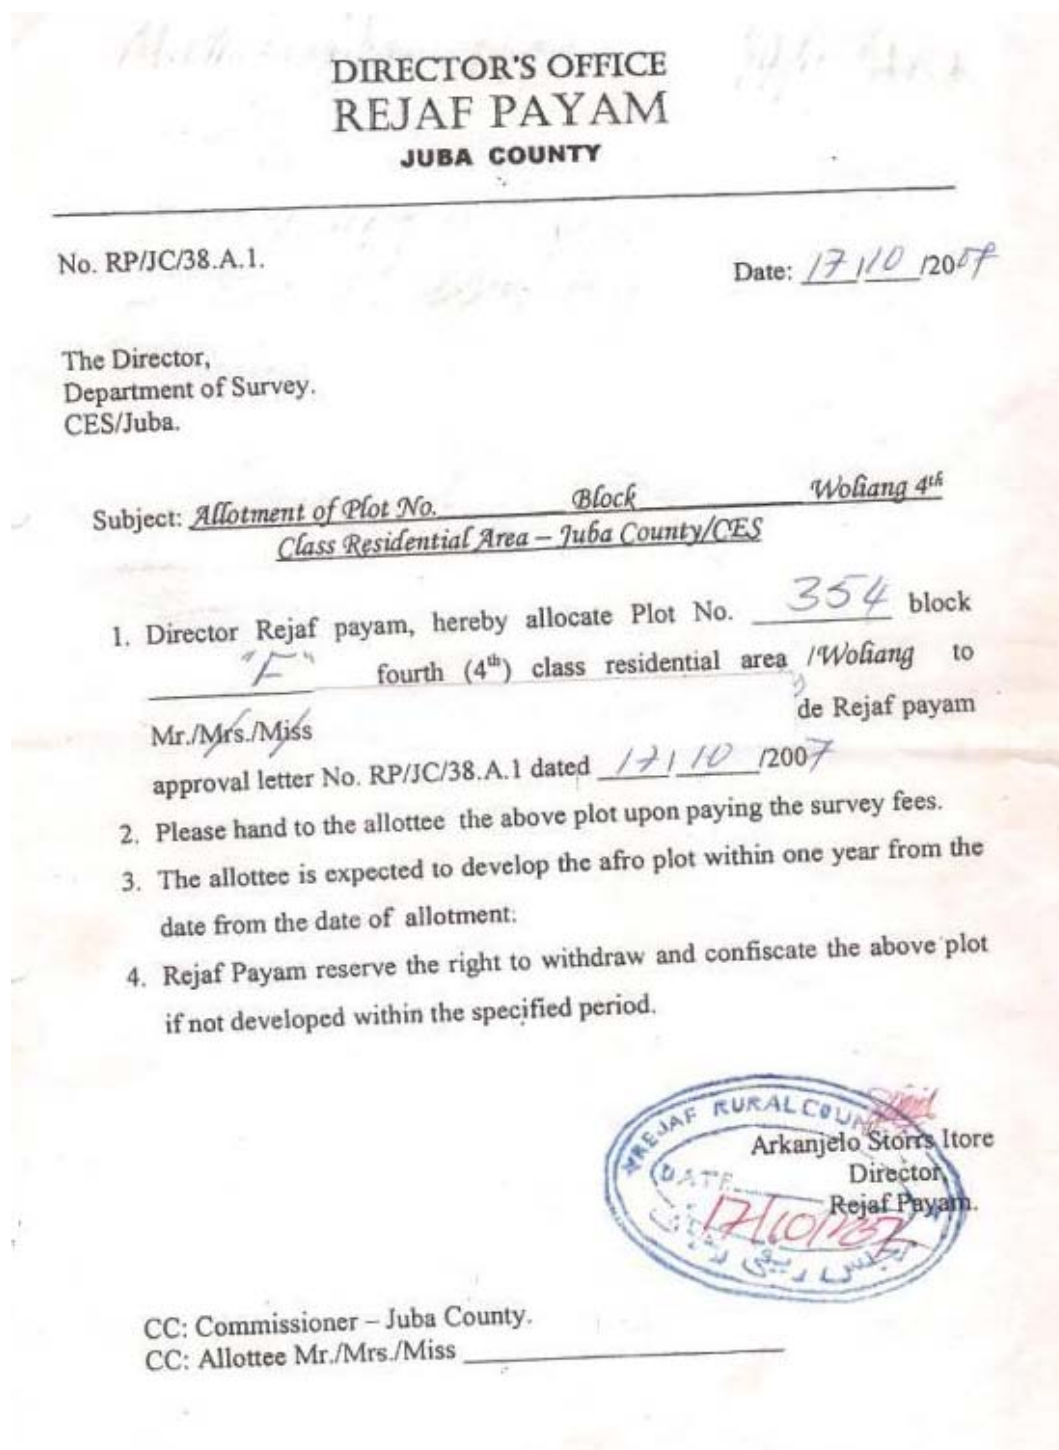 DIRECTOR'S OFFICE
REJAF PAYAM
JUBA COUNTY
No. RP/JC/38.A.1.
Date: 17/10/2007
The Director,
Department of Survey.
CES/Juba.
Subject: Allotment of Plot No. Block Woliang 4th
Class Residential Area – Juba County/CES
1. Director Rejaf payam, hereby allocate Plot No. 354 block
"F" fourth (4th) class residential area /Woliang to
Mr./Mrs./Miss de Rejaf payam
approval letter No. RP/JC/38.A.1 dated 17/10/2007
2. Please hand to the allottee the above plot upon paying the survey fees.
3. The allottee is expected to develop the afro plot within one year from the
date from the date of allotment.
4. Rejaf Payam reserve the right to withdraw and confiscate the above plot
if not developed within the specified period.
REJAF RURAL COUN
Arkanjelo Storrs Itore
Director,
DATE
Rejaf Payam.
17/10/2007
مجلس ريفي رجاف
CC: Commissioner – Juba County.
CC: Allottee Mr./Mrs./Miss